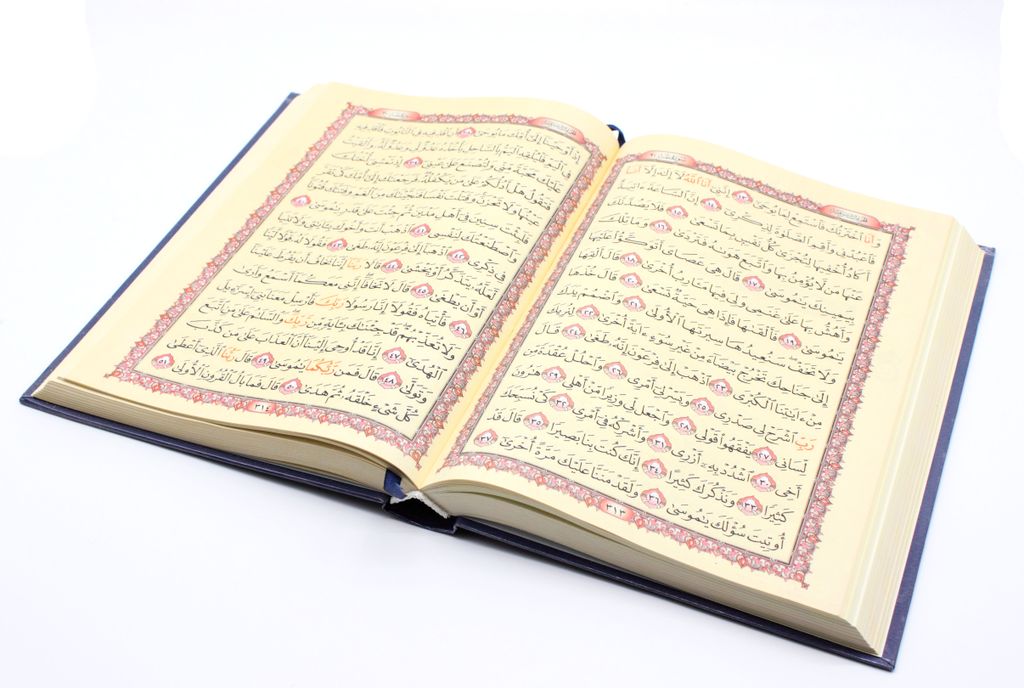 وَأَنَا ٱخْتَرْتُكَ فَٱسْتَمِعْ لِمَا يُوحَىٰٓ ١٣ إِنَّنِىٓ أَنَا ٱللَّهُ لَآ إِلَٰهَ إِلَّآ أَنَا۠
فَٱعْبُدْنِى وَأَقِمِ ٱلصَّلَوٰةَ لِذِكْرِىٓ ١٤ إِنَّ ٱلسَّاعَةَ ءَاتِيَةٌ
أَكَادُ أُخْفِيهَا لِتُجْزَىٰ كُلُّ نَفْسٍۭ بِمَا تَسْعَىٰ ١٥ فَلَا يَصُدَّنَّكَ
عَنْهَا مَن لَّا يُؤْمِنُ بِهَا وَٱتَّبَعَ هَوَىٰهُ فَتَرْدَىٰ ١٦ وَمَا تِلْكَ
بِيَمِينِكَ يَٰمُوسَىٰ ١٧ قَالَ هِىَ عَصَاىَ أَتَوَكَّؤُا۟ عَلَيْهَا
وَأَهُشُّ بِهَا عَلَىٰ غَنَمِى وَلِىَ فِيهَا مَـَٔارِبُ أُخْرَىٰ ١٨ قَالَ أَلْقِهَا
يَٰمُوسَىٰ ١٩ فَأَلْقَىٰهَا فَإِذَا هِىَ حَيَّةٌ تَسْعَىٰ ٢٠ قَالَ خُذْهَا
وَلَا تَخَفْ سَنُعِيدُهَا سِيرَتَهَا ٱلْأُولَىٰ ٢١ وَٱضْمُمْ يَدَكَ
إِلَىٰ جَنَاحِكَ تَخْرُجْ بَيْضَآءَ مِنْ غَيْرِ سُوٓءٍ ءَايَةً أُخْرَىٰ ٢٢ لِنُرِيَكَ
مِنْ ءَايَٰتِنَا ٱلْكُبْرَى ٢٣ ٱذْهَبْ إِلَىٰ فِرْعَوْنَ إِنَّهُۥ طَغَىٰ ٢٤ قَالَ
رَبِّ ٱشْرَحْ لِى صَدْرِى ٢٥ وَيَسِّرْ لِىٓ أَمْرِى ٢٦ وَٱحْلُلْ عُقْدَةً مِّن
لِّسَانِى ٢٧ يَفْقَهُوا۟ قَوْلِى ٢٨ وَٱجْعَل لِّى وَزِيرًا مِّنْ أَهْلِى ٢٩ هَٰرُونَ
أَخِى ٣٠ ٱشْدُدْ بِهِۦٓ أَزْرِى ٣١ وَأَشْرِكْهُ فِىٓ أَمْرِى ٣٢ كَىْ نُسَبِّحَكَ
كَثِيرًا ٣٣ وَنَذْكُرَكَ كَثِيرًا ٣٤ إِنَّكَ كُنتَ بِنَا بَصِيرًا ٣٥ قَالَ قَدْ
أُوتِيتَ سُؤْلَكَ يَٰمُوسَىٰ ٣٦ وَلَقَدْ مَنَنَّا عَلَيْكَ مَرَّةً أُخْرَىٰٓ ٣٧
٣١٣
إِذْ أَوْحَيْنَآ إِلَىٰٓ أُمِّكَ مَا يُوحَىٰٓ ٣٨ أَنِ ٱقْذِفِيهِ فِى ٱلتَّابُوتِ فَٱقْذِفِيهِ
فِى ٱلْيَمِّ فَلْيُلْقِهِ ٱلْيَمُّ بِٱلسَّاحِلِ يَأْخُذْهُ عَدُوٌّ لِّى وَعَدُوٌّ لَّهُۥ وَأَلْقَيْتُ
عَلَيْكَ مَحَبَّةً مِّنِّى وَلِتُصْنَعَ عَلَىٰ عَيْنِىٓ ٣٩ إِذْ تَمْشِىٓ أُخْتُكَ
فَتَقُولُ هَلْ أَدُلُّكُمْ عَلَىٰ مَن يَكْفُلُهُۥ فَرَجَعْنَٰكَ إِلَىٰٓ أُمِّكَ كَىْ تَقَرَّ
عَيْنُهَا وَلَا تَحْزَنَ وَقَتَلْتَ نَفْسًا فَنَجَّيْنَٰكَ مِنَ ٱلْغَمِّ وَفَتَنَّٰكَ فُتُونًا
فَلَبِثْتَ سِنِينَ فِىٓ أَهْلِ مَدْيَنَ ثُمَّ جِئْتَ عَلَىٰ قَدَرٍ يَٰمُوسَىٰ ٤٠
وَٱصْطَنَعْتُكَ لِنَفْسِى ٤١ ٱذْهَبْ أَنتَ وَأَخُوكَ بِـَٔايَٰتِى وَلَا تَنِيَا
فِى ذِكْرِى ٤٢ ٱذْهَبَآ إِلَىٰ فِرْعَوْنَ إِنَّهُۥ طَغَىٰ ٤٣ فَقُولَا لَهُۥ قَوْلًا لَّيِّنًا
لَّعَلَّهُۥ يَتَذَكَّرُ أَوْ يَخْشَىٰ ٤٤ قَالَا رَبَّنَآ إِنَّنَا نَخَافُ أَن يَفْرُطَ عَلَيْنَآ
أَوْ أَن يَطْغَىٰ ٤٥ قَالَ لَا تَخَافَآ إِنَّنِى مَعَكُمَآ أَسْمَعُ وَأَرَىٰ
٤٦ فَأْتِيَاهُ فَقُولَآ إِنَّا رَسُولَا رَبِّكَ فَأَرْسِلْ مَعَنَا بَنِىٓ إِسْرَٰٓءِيلَ
وَلَا تُعَذِّبْهُمْ قَدْ جِئْنَٰكَ بِـَٔايَةٍ مِّن رَّبِّكَ وَٱلسَّلَٰمُ عَلَىٰ مَنِ ٱتَّبَعَ
ٱلْهُدَىٰٓ ٤٧ إِنَّا قَدْ أُوحِىَ إِلَيْنَآ أَنَّ ٱلْعَذَابَ عَلَىٰ مَن كَذَّبَ
وَتَوَلَّىٰ ٤٨ قَالَ فَمَن رَّبُّكُمَا يَٰمُوسَىٰ ٤٩ قَالَ رَبُّنَا ٱلَّذِىٓ أَعْطَىٰ
كُلَّ شَىْءٍ خَلْقَهُۥ ثُمَّ هَدَىٰ ٥٠ قَالَ فَمَا بَالُ ٱلْقُرُونِ ٱلْأُولَىٰ ٥١
٣١٤